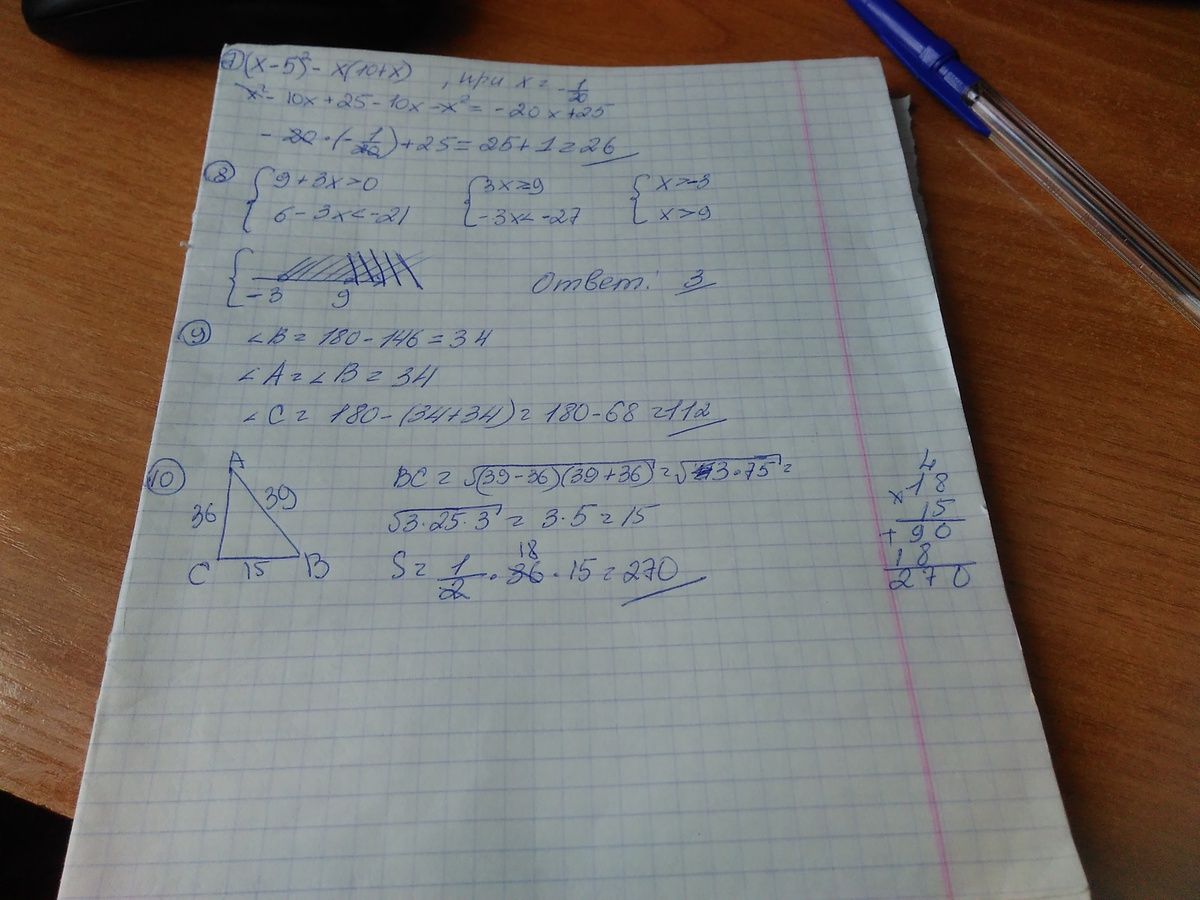 7) (x-5)² - x(10+x), при x = -1/20
x² - 10x + 25 - 10x - x² = -20x + 25
-20·(-1/20) + 25 = 25 + 1 = 26
8 { 9 + 3x > 0 { 3x > 9 { x > -3
6 - 3x < -21 -3x < -27 x > 9
{ -3 9 Ответ: 3
9 ∠B = 180 - 146 = 34
∠A = ∠B = 34
∠C = 180 - (34+34) = 180 - 68 = 112
10 A BC = √(39-36)(39+36) = √3·75 =
36 39 √3·25·3 = 3·5 = 15
C 15 B S = 1/2 · 36 18 · 15 = 270
4
× 18
15
+ 90
18
270